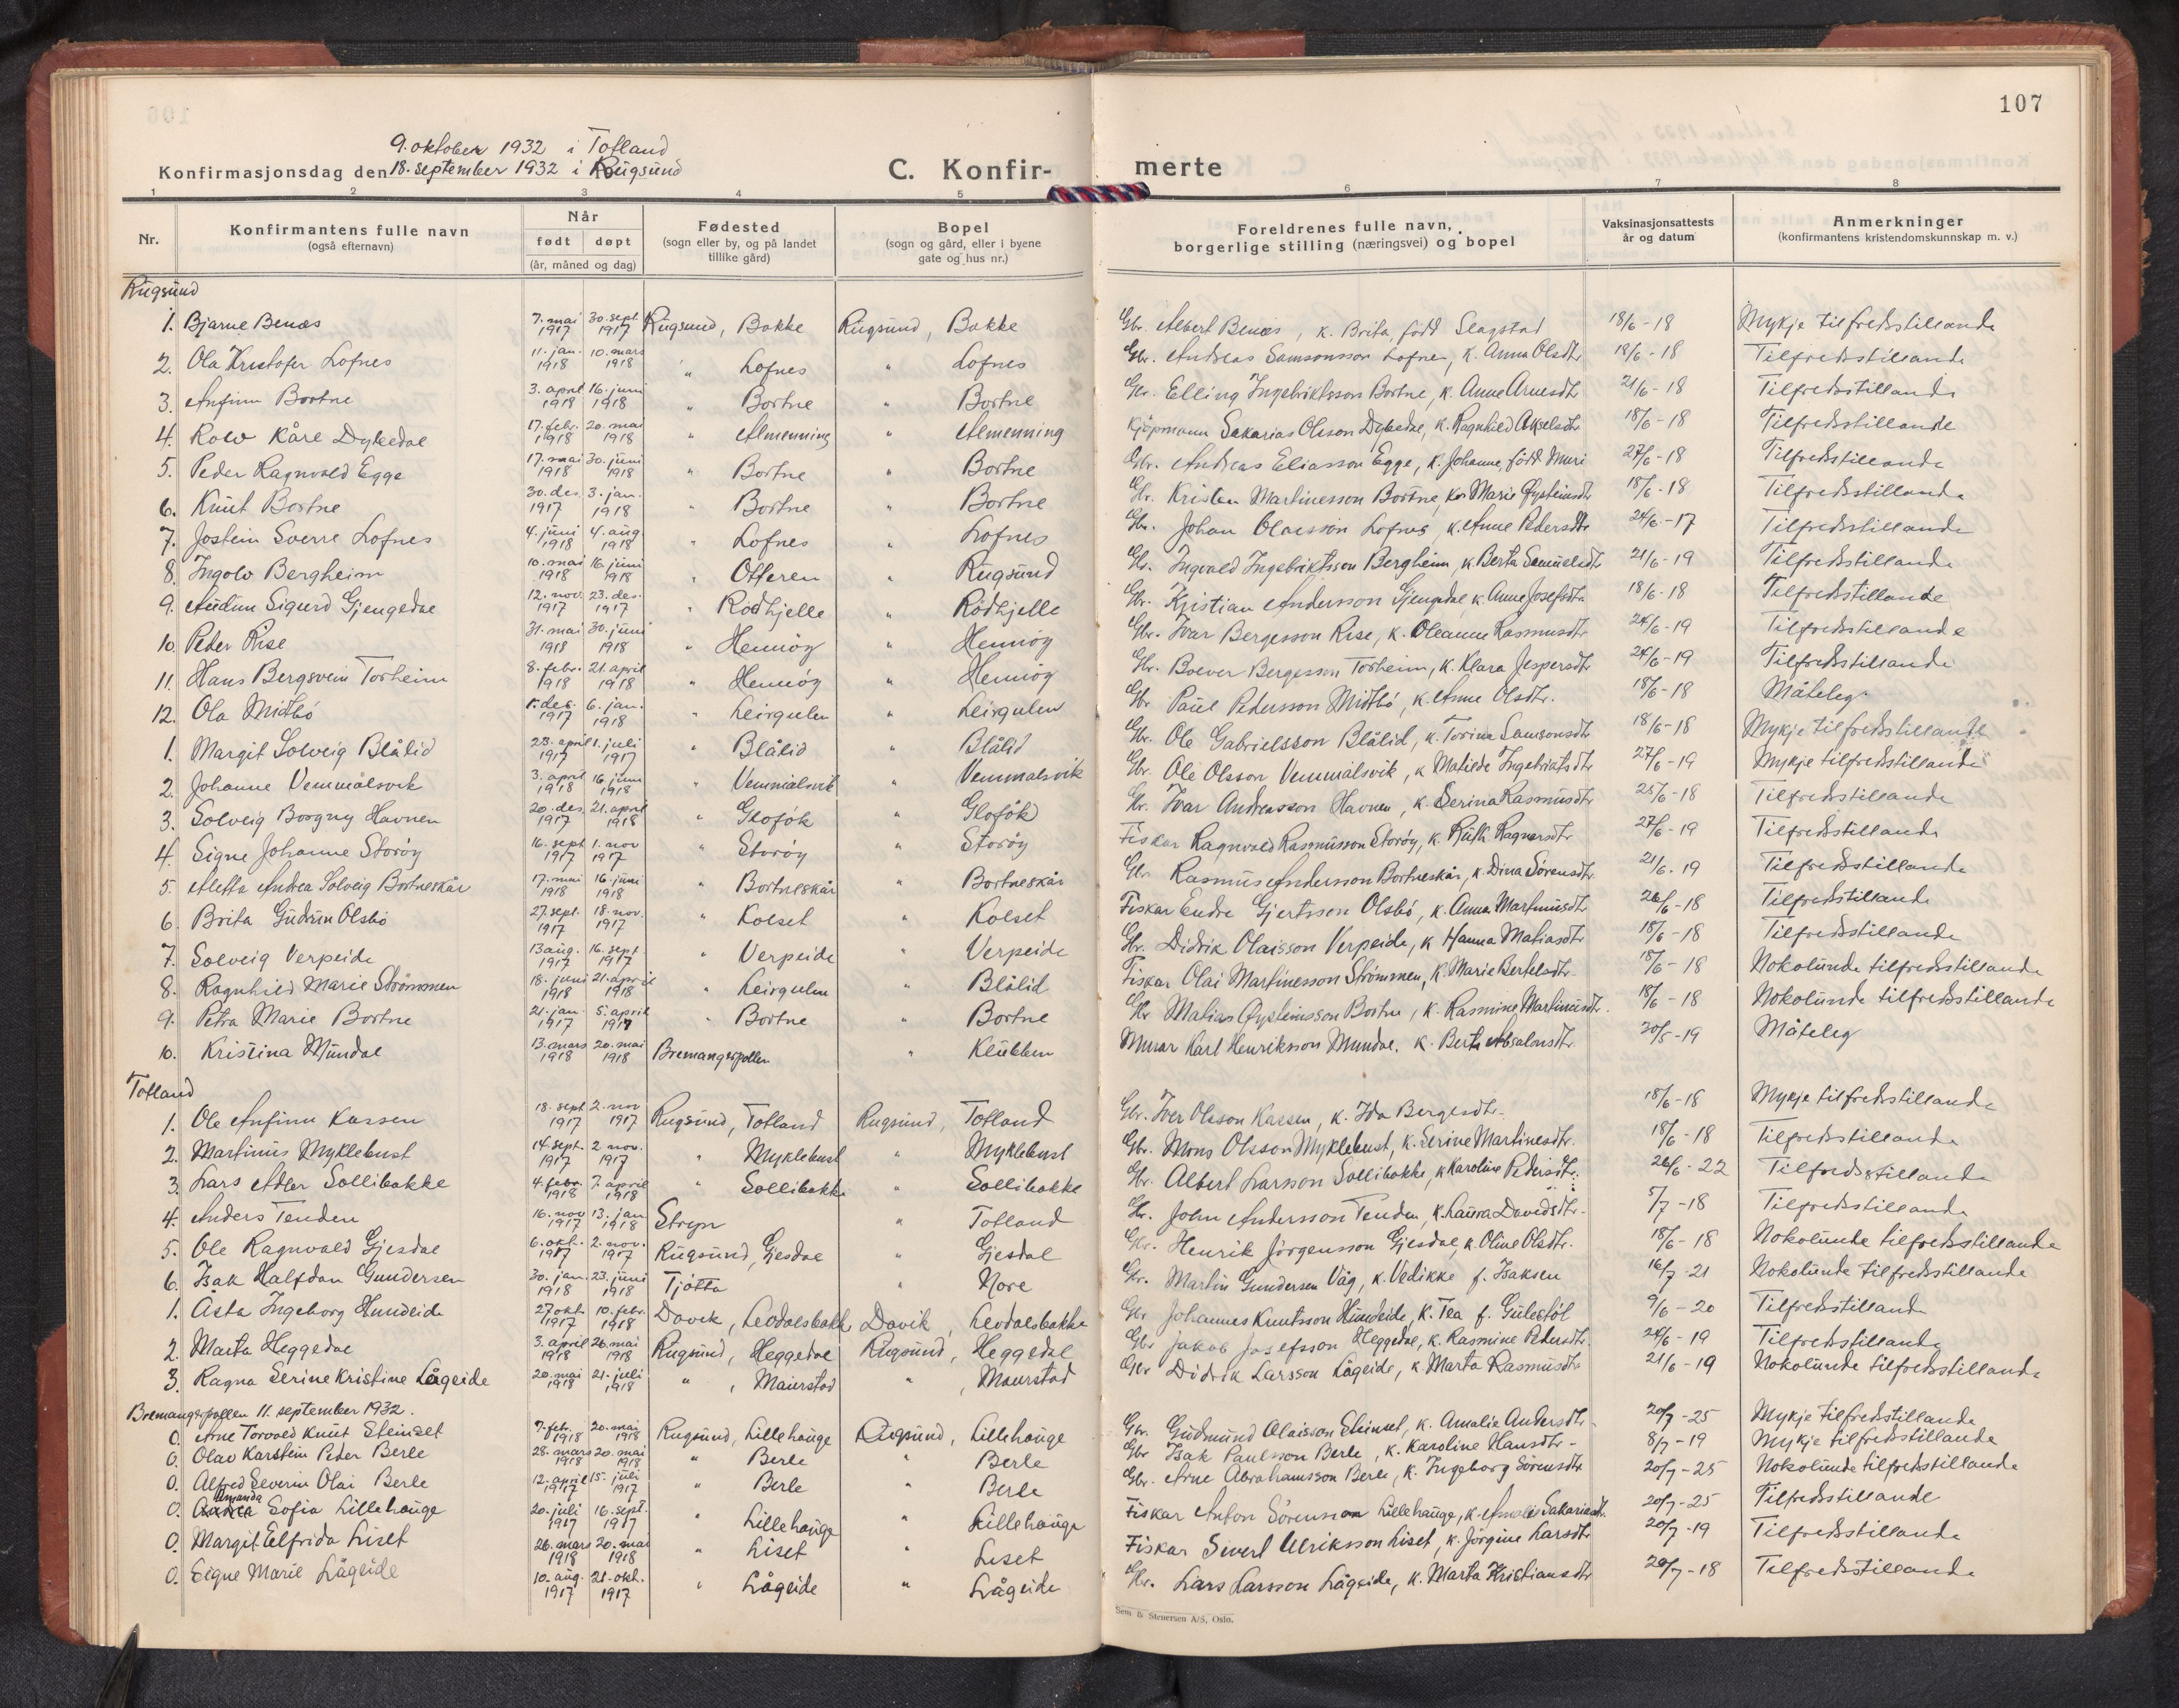 107
9. oktober 1932 i Totland
Konfirmasjonsdag den 18. september 1932 i Rugsund
C. Konfir-
merte
1 2 3 4 5 6 7 8
Nr. | Konfirmantens fulle navn (også efternavn) | Når født | døpt (år, måned og dag) | Fødested (sogn eller by, og på landet tillike gård) | Bopel (sogn og gård, eller i byene gate og hus nr.) | Foreldrenes fulle navn, borgerlige stilling (næringsvei) og bopel | Vaksinasjonsattests år og datum | Anmerkninger (konfirmantens kristendomskunnskap m. v.)
Rugsund
1. Bjarne Benæs | 7. mai 1917 | 30. sept. 1917 | Rugsund, Bakke | Rugsund, Bakke | Gbr. Albert Benæs, k. Brita, född Slagstad | 18/6-18 | Mykje tilfredsstillande
2. Ola Kristofer Lofnes | 11. jan. 1918 | 10. mars 1918 | " Lofnes | " Lofnes | Gbr. Andreas Samsonsson Lofnes, k. Anna Olsdtr | 18/6-18 | Tilfredsstillande
3. Anfinn Bortne | 3. april 1918 | 16. juni 1918 | " Bortne | " Bortne | Gbr. Elling Ingebriktsson Bortne, k. Anne Arnesdtr | 21/6-18 | Tilfredsstillande
4. Rolv Kåre Dykedal | 17. febr. 1918 | 20. mai 1918 | " Almenning | " Almenning | Kjöpmann Sakarias Olsson Dykedal, k. Ragnhild Akselsdtr | 18/6-18 | Tilfredsstillande
5. Peder Ragnvald Egge | 17. mai 1918 | 30. juni 1918 | " Bortne | " Bortne | Gbr. Andreas Eliasson Egge, k. Johanne, född Muri | 27/6-18 | Tilfredsstillande
6. Knut Bortne | 30. des. 1917 | 3. jan. 1918 | " Bortne | " Bortne | Gbr. Kristen Martinesson Bortne, k. Marie Øysteinsdtr | 18/6-18 | Tilfredsstillande
7. Jostein Sverre Lofnes | 4. juni 1918 | 4. aug. 1918 | " Lofnes | " Lofnes | Gbr. Johan Olaisson Lofnes, k. Anne Pedersdtr | 24/6-17 | Tilfredsstillande
8. Ingolv Bergheim | 10. mai 1918 | 16. juni 1918 | " Otteren | " Rugsund | Gbr. Ingvald Ingebriktsson Bergheim, k. Berta Samuelsdtr | 21/6-19 | Tilfredsstillande
9. Audun Sigurd Gjengedal | 12. nov. 1917 | 23. des. 1917 | " Rödhjelle | " Rödhjelle | Gbr. Kristian Andersson Gjengedal k. Anne Josefsdtr | 18/6-18 | Tilfredsstillande
10. Peder Rise | 31. mai 1918 | 30. juni 1918 | " Hennöy | " Hennöy | Gbr. Ivar Bergesson Rise, k. Oleanne Rasmusdtr | 24/6-19 | Tilfredsstillande
11. Hans Bergsvein Torheim | 8. febr. 1918 | 21. april 1918 | " Hennöy | " Hennöy | Gbr. Boever Bergesson Torheim, k. Klara Jespersdtr | 24/6-19 | Tilfredsstillande
12. Ola Midtbö | 1. des. 1917 | 6. jan. 1918 | " Leirgulen | " Leirgulen | Gbr Paul Pedersson Midtbö, k. Anne Olsdtr. | 18/6-18 | Måteleg
1. Margit Solveig Blålid | 23. april 1917 | 1. juli 1917 | " Blålid | " Blålid | Gbr. Ole Gabrielsson Blålid, k. Torine Samsonsdtr | 18/6-18 | Mykje tilfredsstillande
2. Johanne Vemmålsvik | 3. april 1918 | 16 juni 1918 | " Vemmålsvik | " Vemmalsvik | Gbr. Ole Olsson Vemmålsvik, k Matilde Ingebriktsdtr | 27/6-19 | Mykje tilfredsstillande
3. Solveig Borgny Havnen | 20. des. 1917 | 21. april 1918 | " Glofök | " Glofök | Gbr. Ivar Andreasson Havnen, k. Serina Rasmusdtr | 25/6-18 | Tilfredsstillande
4. Signe Johanne Storöy | 16. sept 1917 | 1. nov 1917 | " Storöy | " Storöy | Fiskar Ragnvald Rasmusson Storöy, k. Ruth Ragnarsdtr | 27/6-19 | Tilfredsstillande
5. Aletta Andrea Solveig Bortneskår | 17. mai 1918 | 16. juni 1918 | " Bortneskår | " Bortneskår | Gbr. Rasmus Andersson Bortneskår, k. Dina Sörensdtr | 21/6-19 | Tilfredsstillande
6. Brita Gudrun Olsbö | 27. sept. 1917 | 18. nov. 1917 | " Kolset | " Kolset | Fiskar Endre Gjertsson Olsbö, k. Anna Martinusdtr | 26/6-18 | Tilfredsstillande
7. Solveig Verpeide | 13 aug. 1917 | 16. sept 1917 | " Verpeide | " Verpeide | Gbr. Didrik Olaisson Verpeide, k Hanna Matiasdtr | 18/6-18 | Tilfredsstillande
8. Ragnhild Marie Strömmen | 18. juni 1918 | 21. april 1918 | " Leirgulen | " Blålid | Fiskar Olai Martinesson Strömmen, k. Marie Bertelsdtr | 18/6-18 | Nokolunde tilfredsstillande
9. Petra Marie Bortne | 21. jan. 1917 | 5. april 1917 | " Bortne | " Bortne | Gbr Matias Øysteinsson Bortne, k. Rasmine Martinusdtr. | 18/6-18 | Nokolunde tilfredsstillande
10. Kristina Mundal | 13. mars 1918 | 20. mai 1918 | Bremangerpollen | " Klubben | Murar Karl Henriksson Mundal, k. Berte Absalonsdtr | 30/5-19 | Måteleg
Totland
1. Ole Anfinn Kassen | 18. sept 1917 | 2. nov 1917 | Rugsund, Totland | Rugsund, Totland | Gbr. Iver Olsson Kassen, k. Ida Bergesdtr | 18/6-18 | Mykje tilfredsstillande
2. Martinus Myklebust | 14. sept. 1917 | 2. nov. 1917 | " Myklebust | " Myklebust | Gbr. Mons Olsson Myklebust, k. Serine Martinesdtr. | 18/6-18 | Tilfredsstillande
3. Lars Atler Sollibakke | 4. febr. 1918 | 7. april 1918 | " Sollibakke | " Sollibakke | Gbr. Albert Larsson Sollibakke, k Karoline Pedersdtr. | 26/6-22 | Tilfredsstillande
4. Anders Tenden | 16. nov 1917 | 13. jan 1918 | Stryn | " Totland | Gbr. John Andersson Tenden, k. Laura Davidsdtr | 5/7-18 | Tilfredsstillande
5. Ole Ragnvald Gjesdal | 6. okt. 1917 | 2. nov. 1917 | Rugsund, Gjesdal | " Gjesdal | Gbr. Henrik Jörgensson Gjesdal, k. Oline Olsdtr. | 18/6-18 | Nokolunde tilfredsstillande
6. Isak Halfdan Gundersen | 30. jan. 1918 | 23. juni 1918 | Tjötta | " Nore | Gbr. Martin Gundersen Våg, k. Vedikke f. Isaksen | 16/7-21 | Nokolunde tilfredsstillande
1. Asta Ingeborg Hundeide | 27 okt. 1917 | 10. febr. 1918 | Davik, Leodalsbakk | Davik, Leodalsbakke | Gbr Johannes Knutsson Hundeide, k. Tea f. Gulestöl | 9/6-20 | Tilfredsstillande
2. Marta Heggedal | 3. april 1918 | 26. mai 1918 | Rugsund, Heggedal | Rugsund, Heggedal | Gbr Jakob Josefsson Heggedal, k. Rasmine Pedersdtr. | 24/6-19 | Tilfredsstillande
3. Ragna Serine Kristine Lågeide | 20. mai 1918 | 21. juli 1918 | " , Maurstad | " , Maurstad | Gbr Didrik Larsson Lågeide, k Marta Rasmusdtr | 21/6-19 | Nokolunde tilfredsstillande
Bremangerpollen 11. september 1932.
0. Arne Torvald Knut Steinset | 7. febr. 1918 | 20. mai 1918 | Rugsund, Lillehauge | Rugsund, Lillehauge | Gbr. Gudmund Olaisson Steinset, k. Amalie Andersdtr | 20/7-25 | Mykje tilfredsstillande
0. Olav Karstein Peder Berle | 28. mars 1918 | 20. mai 1918 | " Berle | " Berle | Gbr Isak Paulsson Berle, k. Karoline Hansdtr | 8/7-19 | Mykje tilfredsstillande
0. Alfred Severin Olai Berle | 12. april 1917 | 15. juli 1917 | " Berle | " Berle | Gbr. Arne Abrahamsson Berle, k. Ingeborg Sörensdtr | 20/7-25 | Nokolunde tilfredsstillande
0. Amanda Sofia Lillehauge | 20. juli 1917 | 16. sept. 1917 | " Lillehauge | " Lillehauge | Fiskar Anton Sörensson Lillehauge, k. Amalie Sakariasdtr. | 20/7-25 | Tilfredsstillande
0. Margit Elfrida Liset | 26. mars 1918 | 20. mai 1918 | " Liset | " Liset | Fiskar Sivert Ulriksson Liset, k. Jörgine Larsdtr | 20/7-19 | Tilfredsstillande
0. Signe Marie Lågeide | 10. aug. 1917 | 21. okt. 1917 | " Lågeide | " Lågeide | Gbr. Lars Larsson Lågeide, k. Marta Kristiansdtr | 20/7-18 | Tilfredsstillande
Sem & Stenersen A/S, Oslo.